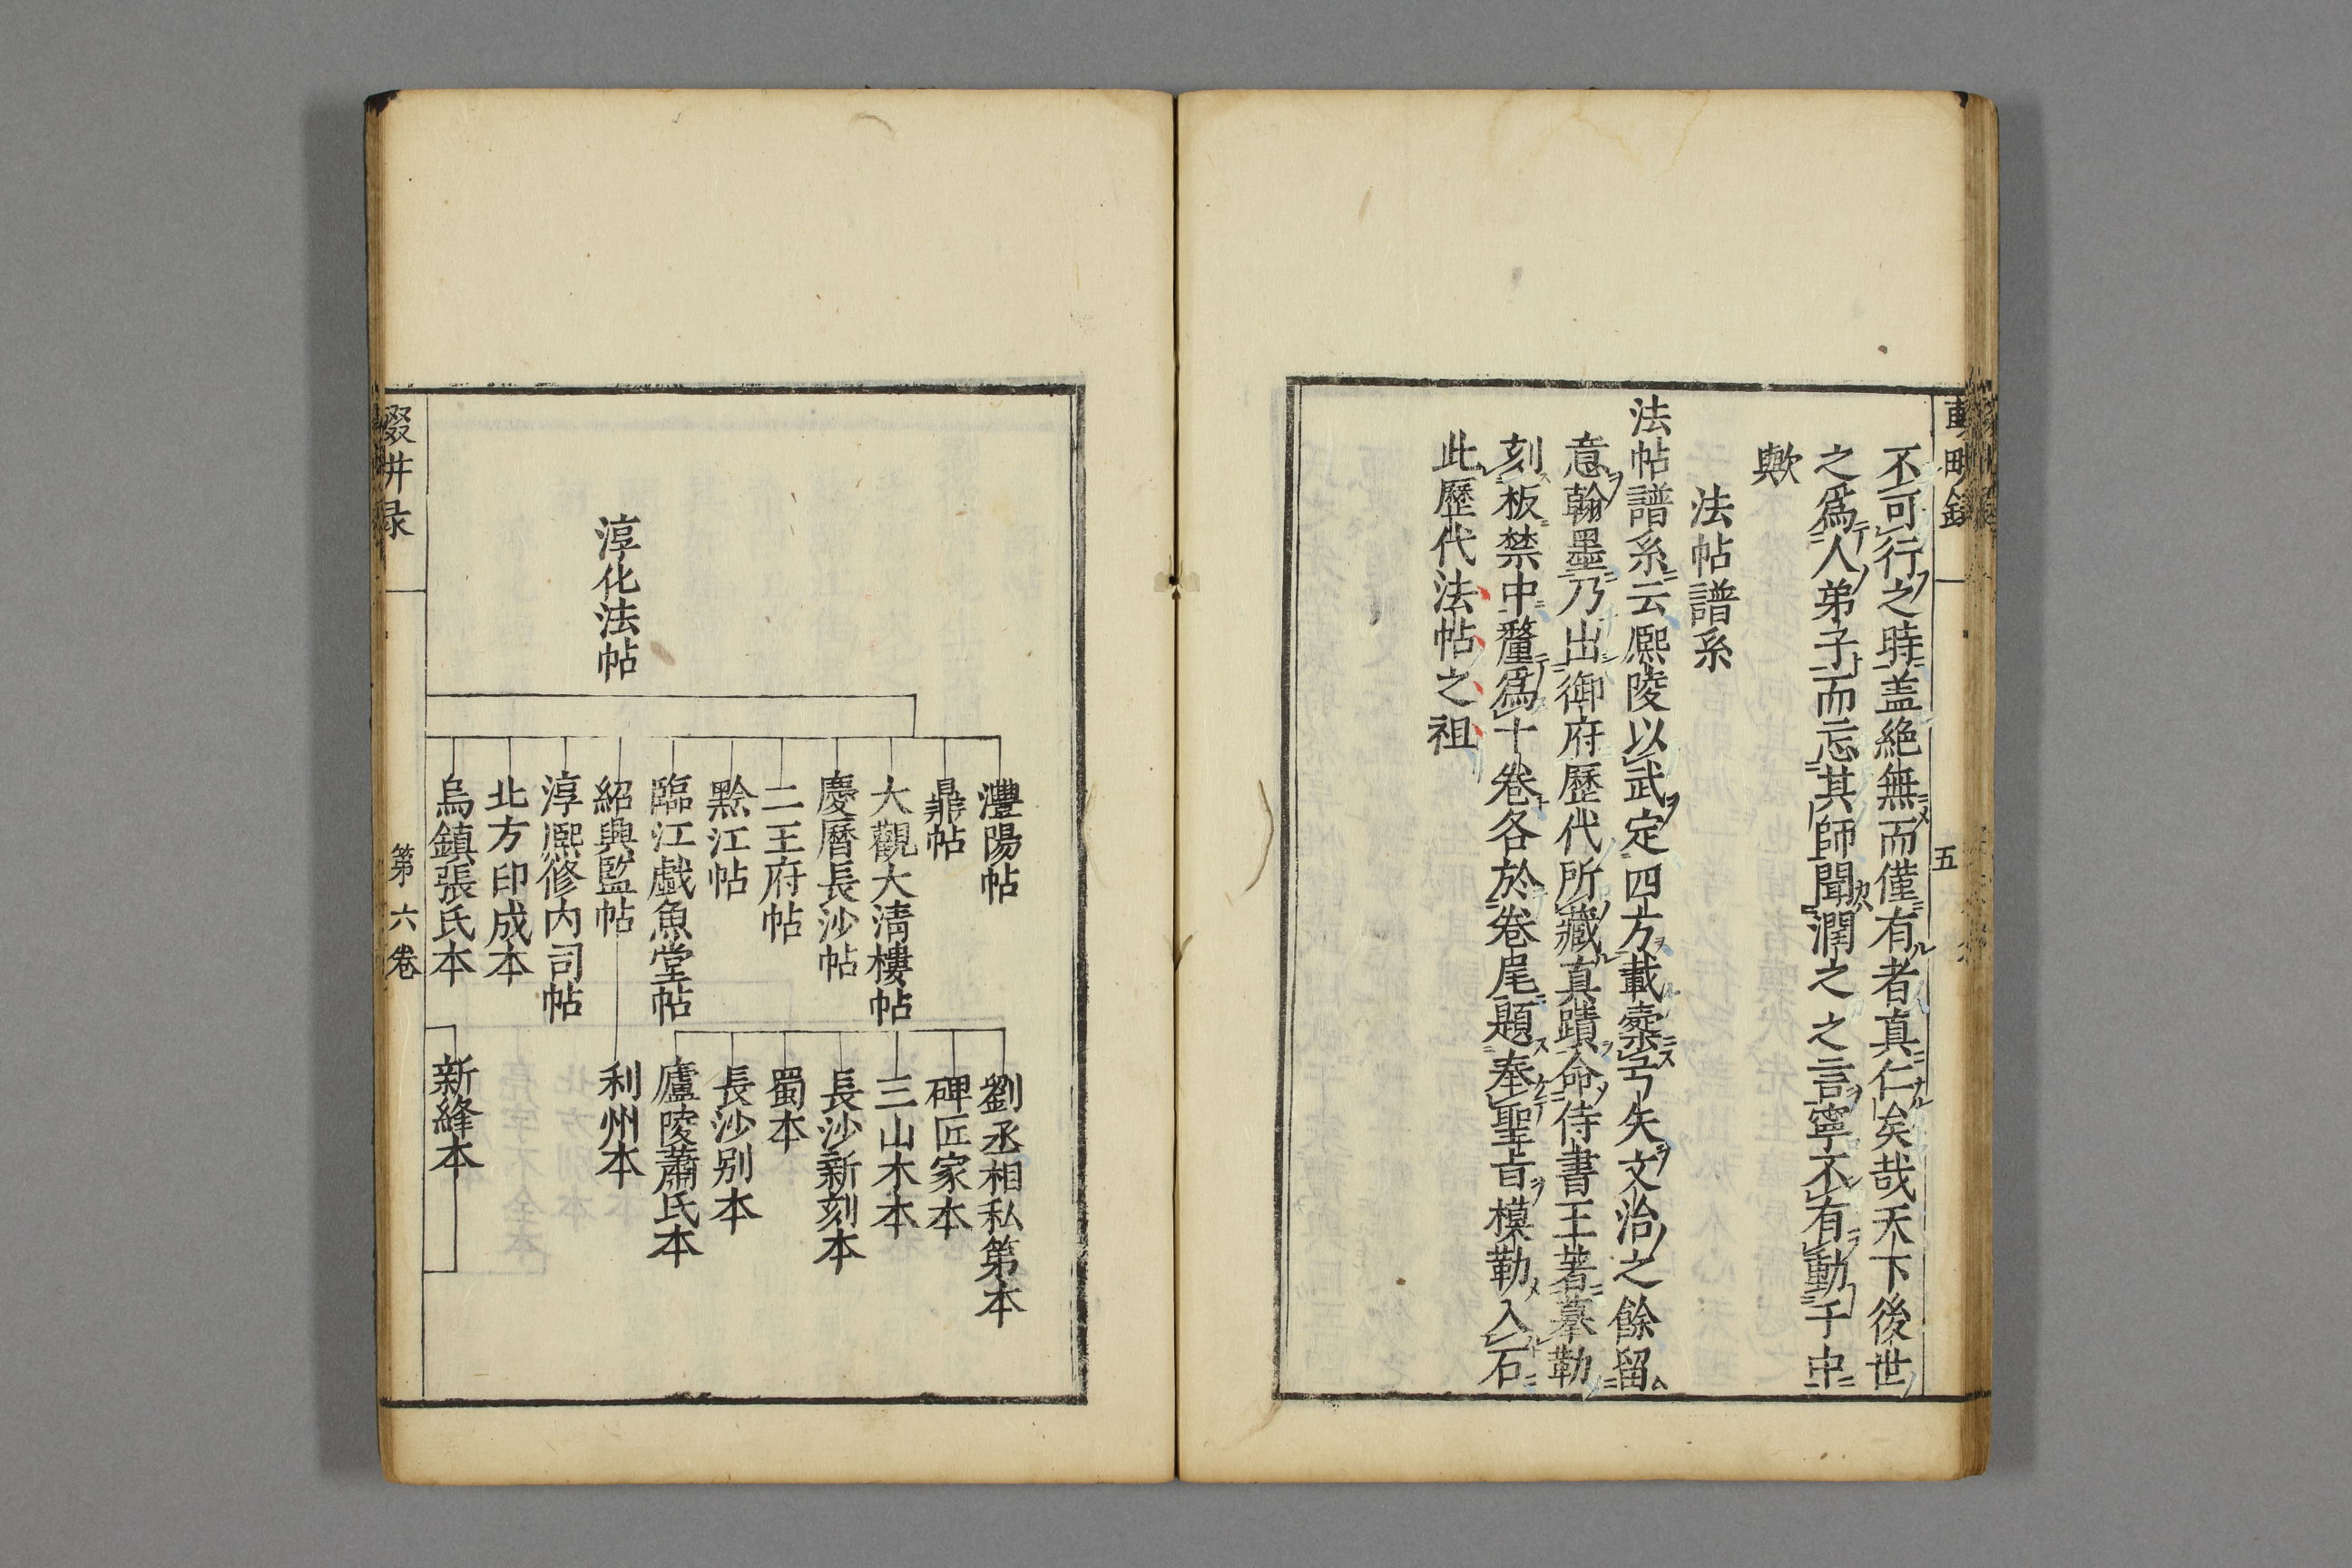 不可行之時盖絶無而僅有者真仁矣哉天下後世
之爲人弟子而忘其師聞潤之之言寧不有動于中
歟
法帖譜系
法帖譜系云熈陵以武定四方載櫜弓矢文治之餘留
意翰墨乃出御府歷代所藏真蹟命侍書王著摹勒
刻板禁中釐爲十卷各於卷尾題奉聖旨模勒入石
此歷代法帖之祖
五
淳化法帖
澧陽帖
鼎帖
大觀大清樓帖
慶曆長沙帖
二王府帖
黔江帖
臨江戯魚堂帖
紹興監帖
淳熈修内司帖
北方印成本
烏鎮張氏本
劉丞相私第本
碑匠家本
三山木本
長沙新刻本
蜀本
長沙别本
廬陵蕭氏本
利州本
新絳本
第六卷